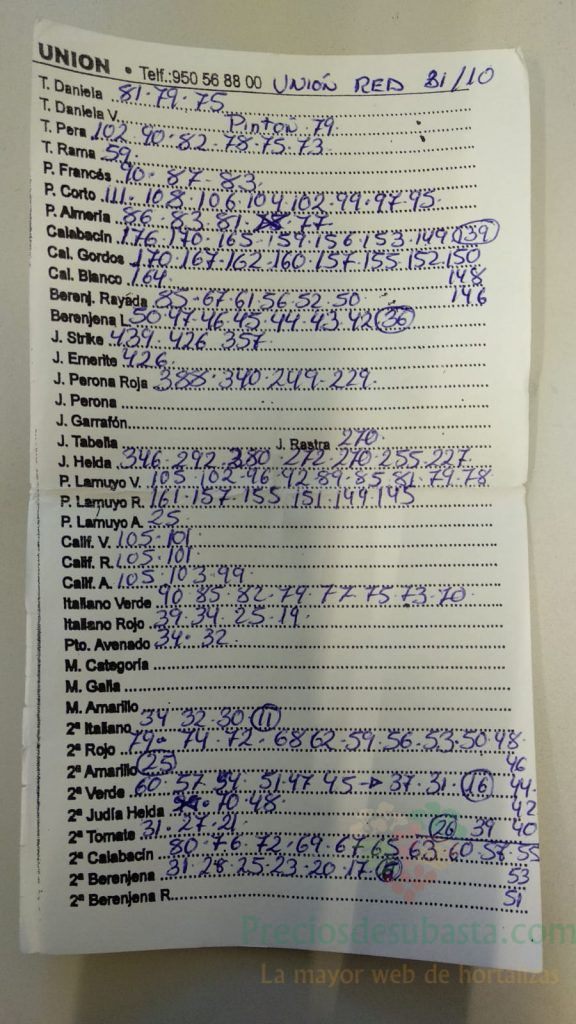 UNION • Telf.:950 56 88 00 UNIÓN RED 31/10
T. Daniela 81.79.75
T. Daniela V. Pinton 79.
T. Pera 102.90.82.78.75.73
T. Rama 59.
P. Francés 90.87.83.
P. Corto 111.108.106.104.102.99.97.95
P. Almería 86.83.81.77
Calabacín 176.170.165.159.156.153.149 139
Cal. Gordos 170.167.162.160.157.155.152.150
Cal. Blanco 164. 148
Berenj. Rayada 85.67.61.56.52.50 146
Berenjena L. 50.47.46.45.44.43.42 36
J. Strike 439.426.357.
J. Emerite 426.
J. Perona Roja 388.340.249.229.
J. Perona
J. Garrafón
J. Tabella J. Rastra 270.
J. Helda 346.292.280.272.270.255.227
P. Lamuyo V. 105.102.96.92.89.85.81.79.78
P. Lamuyo R. 161.157.155.151.149.145
P. Lamuyo A. 25
Calif. V. 105.101
Calif. R. 105.101
Calif. A. 105.103.99
Italiano Verde 90.85.82.79.77.75.73.70
Italiano Rojo 39.34.25.19.
Pto. Avenado 34.32
M. Categoría
M. Galia
M. Amarillo
2ª Italiano 34 32.30 11
2ª Rojo 79.74.72.68 62.59.56.53.50.48
2ª Amarillo 25 46
2ª Verde 60.57.54.51.47 45→37.31. 16 44
2ª Judía Helda 70.48. 42
2ª Tomate 31.27.21 26 39 40
2ª Calabacín 80.76.72.69.67.65.63.60.58.55
2ª Berenjena 31.28.25.23.20.17 53
2ª Berenjena R. 51
Preciosdesubasta.com
La mayor web de hortalizas